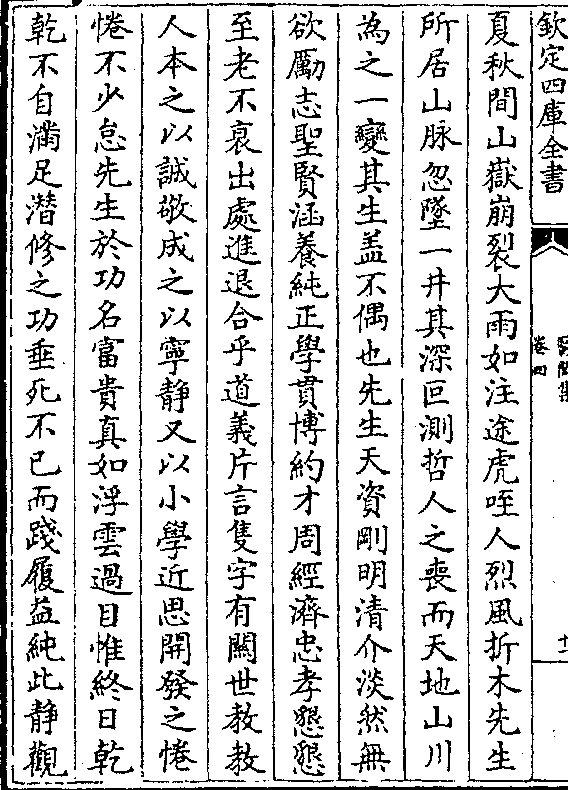 欽定四庫全書
卷四
夏秋間山嶽崩裂大雨如注途虎咥人烈風折木先生
所居山脉忽墜一井其深叵測哲人之喪而天地山川
為之一變其生盖不偶也先生天資剛明清介淡然無
欲勵志聖賢涵養純正學貫博約才周經濟忠孝懇懇
至老不衰出處進退合乎道義片言隻字有關世教教
人本之以誠敬成之以寧静又以小學近思開發之惓
惓不少怠先生於功名富貴真如浮雲過目惟終日乾
乾不自滿足潜修之功垂死不已而踐履益純此静觀